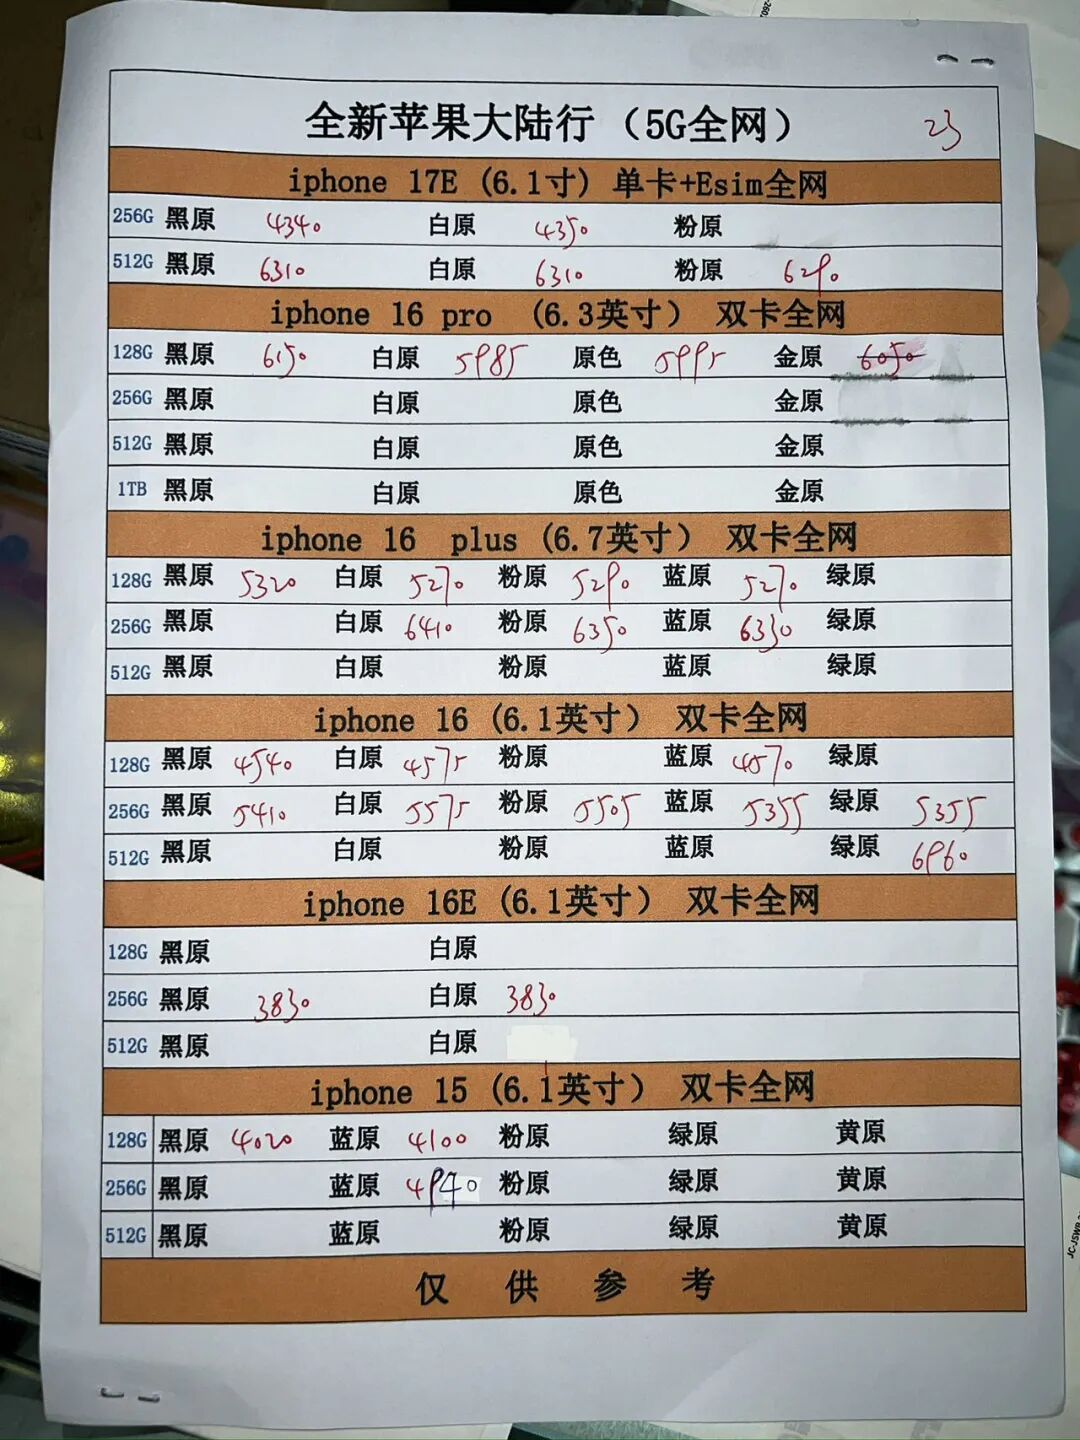 全新苹果大陆行（5G全网） 23
iphone 17E (6.1寸) 单卡+Esim全网
256G 黑原 4340 白原 4350 粉原
512G 黑原 6310 白原 6310 粉原 6290
iphone 16 pro （6.3英寸） 双卡全网
128G 黑原 6150 白原 5985 原色 5995 金原 6050
256G 黑原 白原 原色 金原
512G 黑原 白原 原色 金原
1TB 黑原 白原 原色 金原
iphone 16 plus (6.7英寸） 双卡全网
128G 黑原 5320 白原 5270 粉原 5290 蓝原 5270 绿原
256G 黑原 白原 6410 粉原 6350 蓝原 6330 绿原
512G 黑原 白原 粉原 蓝原 绿原
iphone 16 (6.1英寸） 双卡全网
128G 黑原 4540 白原 4575 粉原 蓝原 4570 绿原
256G 黑原 5410 白原 5575 粉原 5505 蓝原 5355 绿原 5355
512G 黑原 白原 粉原 蓝原 绿原 6960
iphone 16E (6.1英寸） 双卡全网
128G 黑原 白原
256G 黑原 3830 白原 3830
512G 黑原 白原
iphone 15 (6.1英寸） 双卡全网
128G 黑原 4020 蓝原 4100 粉原 绿原 黄原
256G 黑原 蓝原 4940 粉原 绿原 黄原
512G 黑原 蓝原 粉原 绿原 黄原
仅供参考